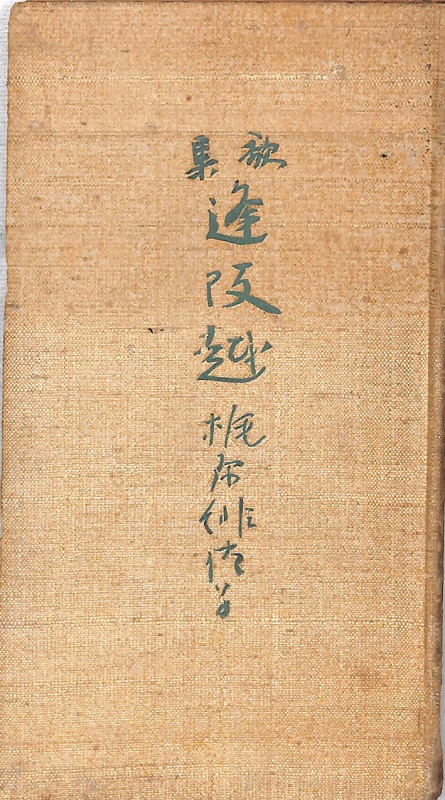 歌集
逢阪越
梶原緋佐子